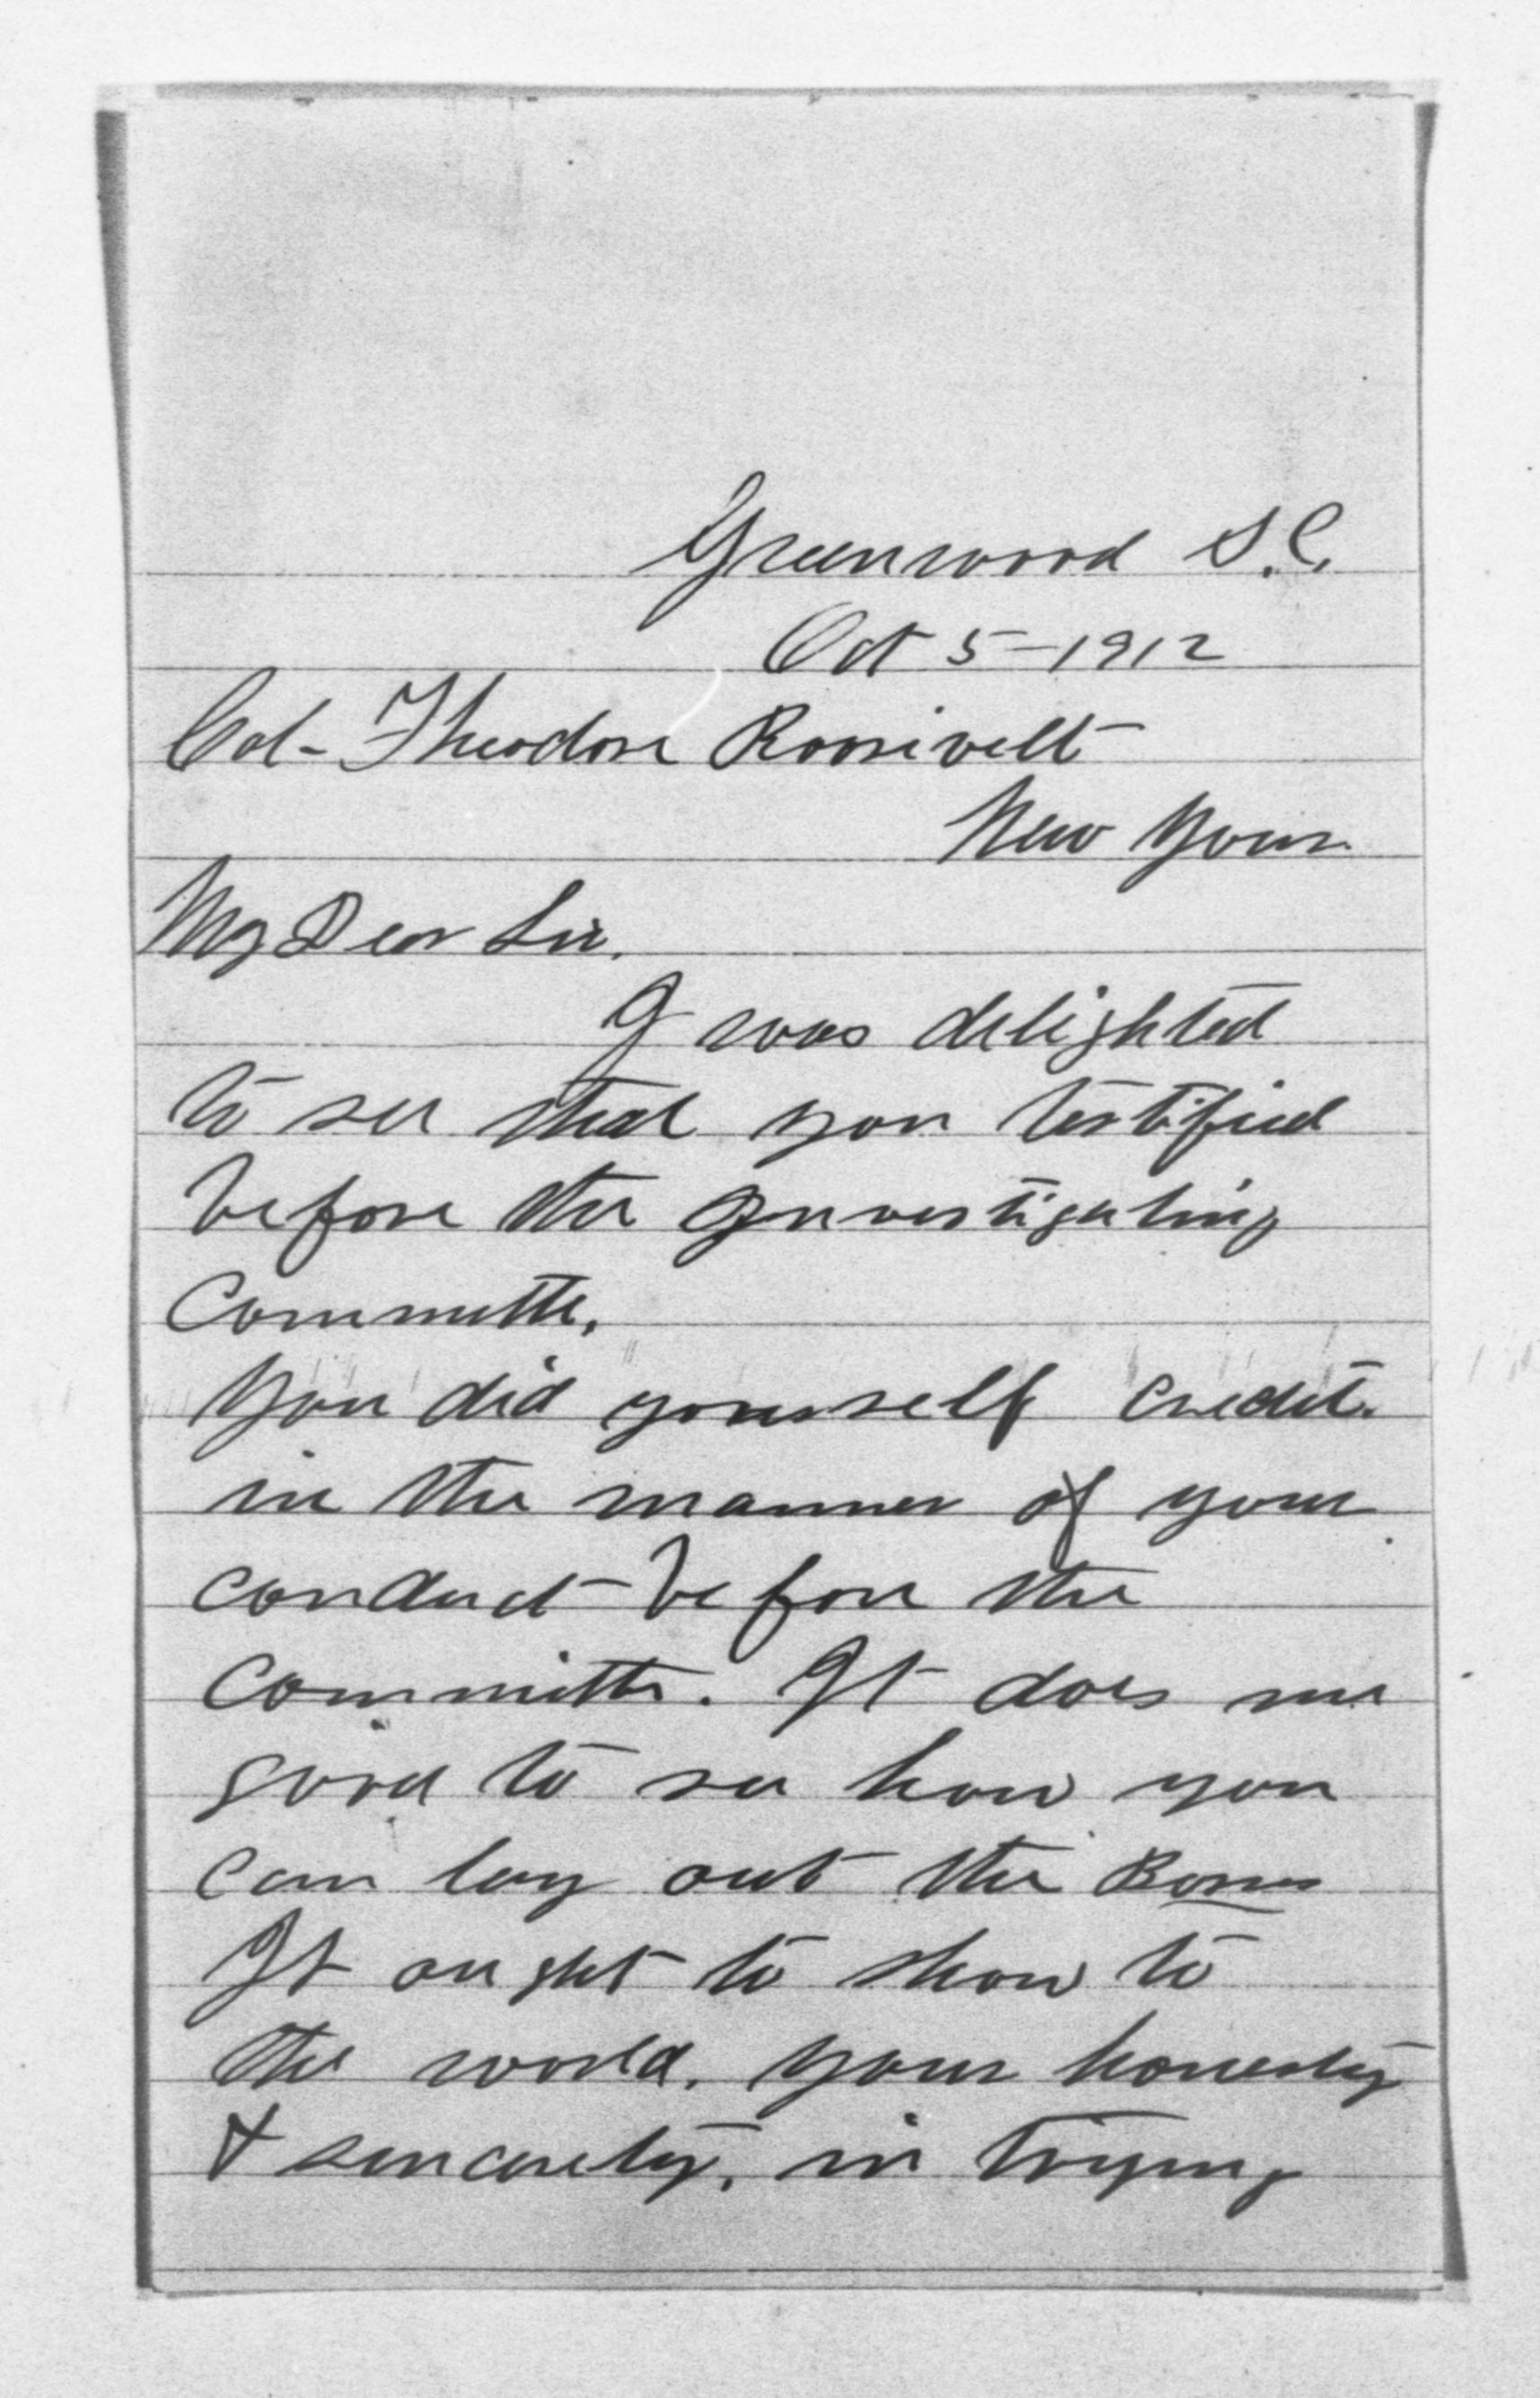 Greenwood S.C.
Oct 5-1912
Col- Theodore Roosivelt
New York
My Dear Sir.
I was delighted
to see that you testified
before the Investigating
Committe.
You did yourself credit.
in the manner of your
conduct before the
Committe. It does me
good to see how you
can lay out the Bosses
It ought to show to
the world. your honesty
& sincerety, in trying